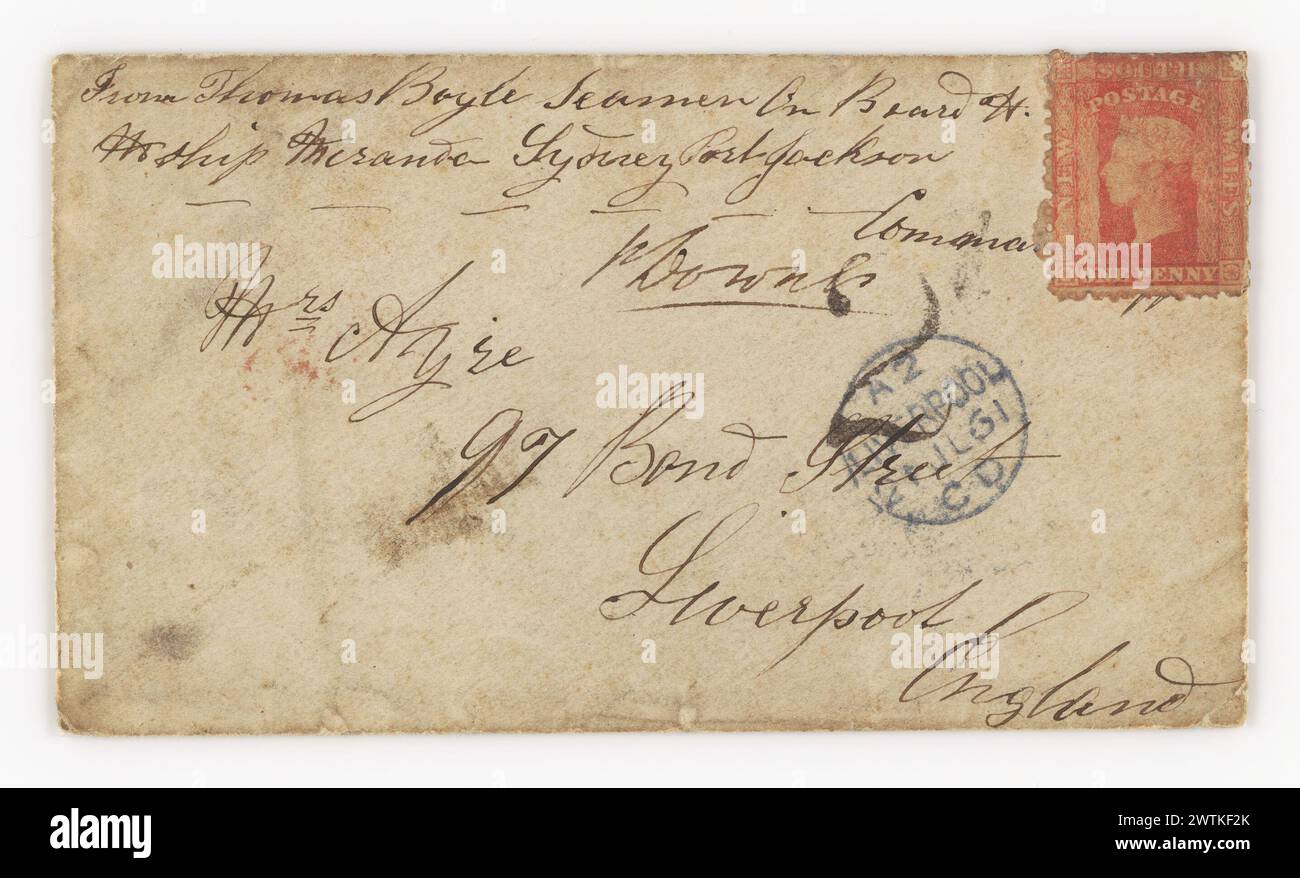 From Thomas Boyle Seamen On Board H.
M Ship Meranda Sydney Port Jackson
Comma
Mrs Ayre
97 Bond Street
Liverpool
England
SOUTH
POSTAGE
NEW
WALES
ONE PENNY
A2
LIVERPOOL
JL 61
alamy
Image ID: 2WTKF2K
www.alamy.com